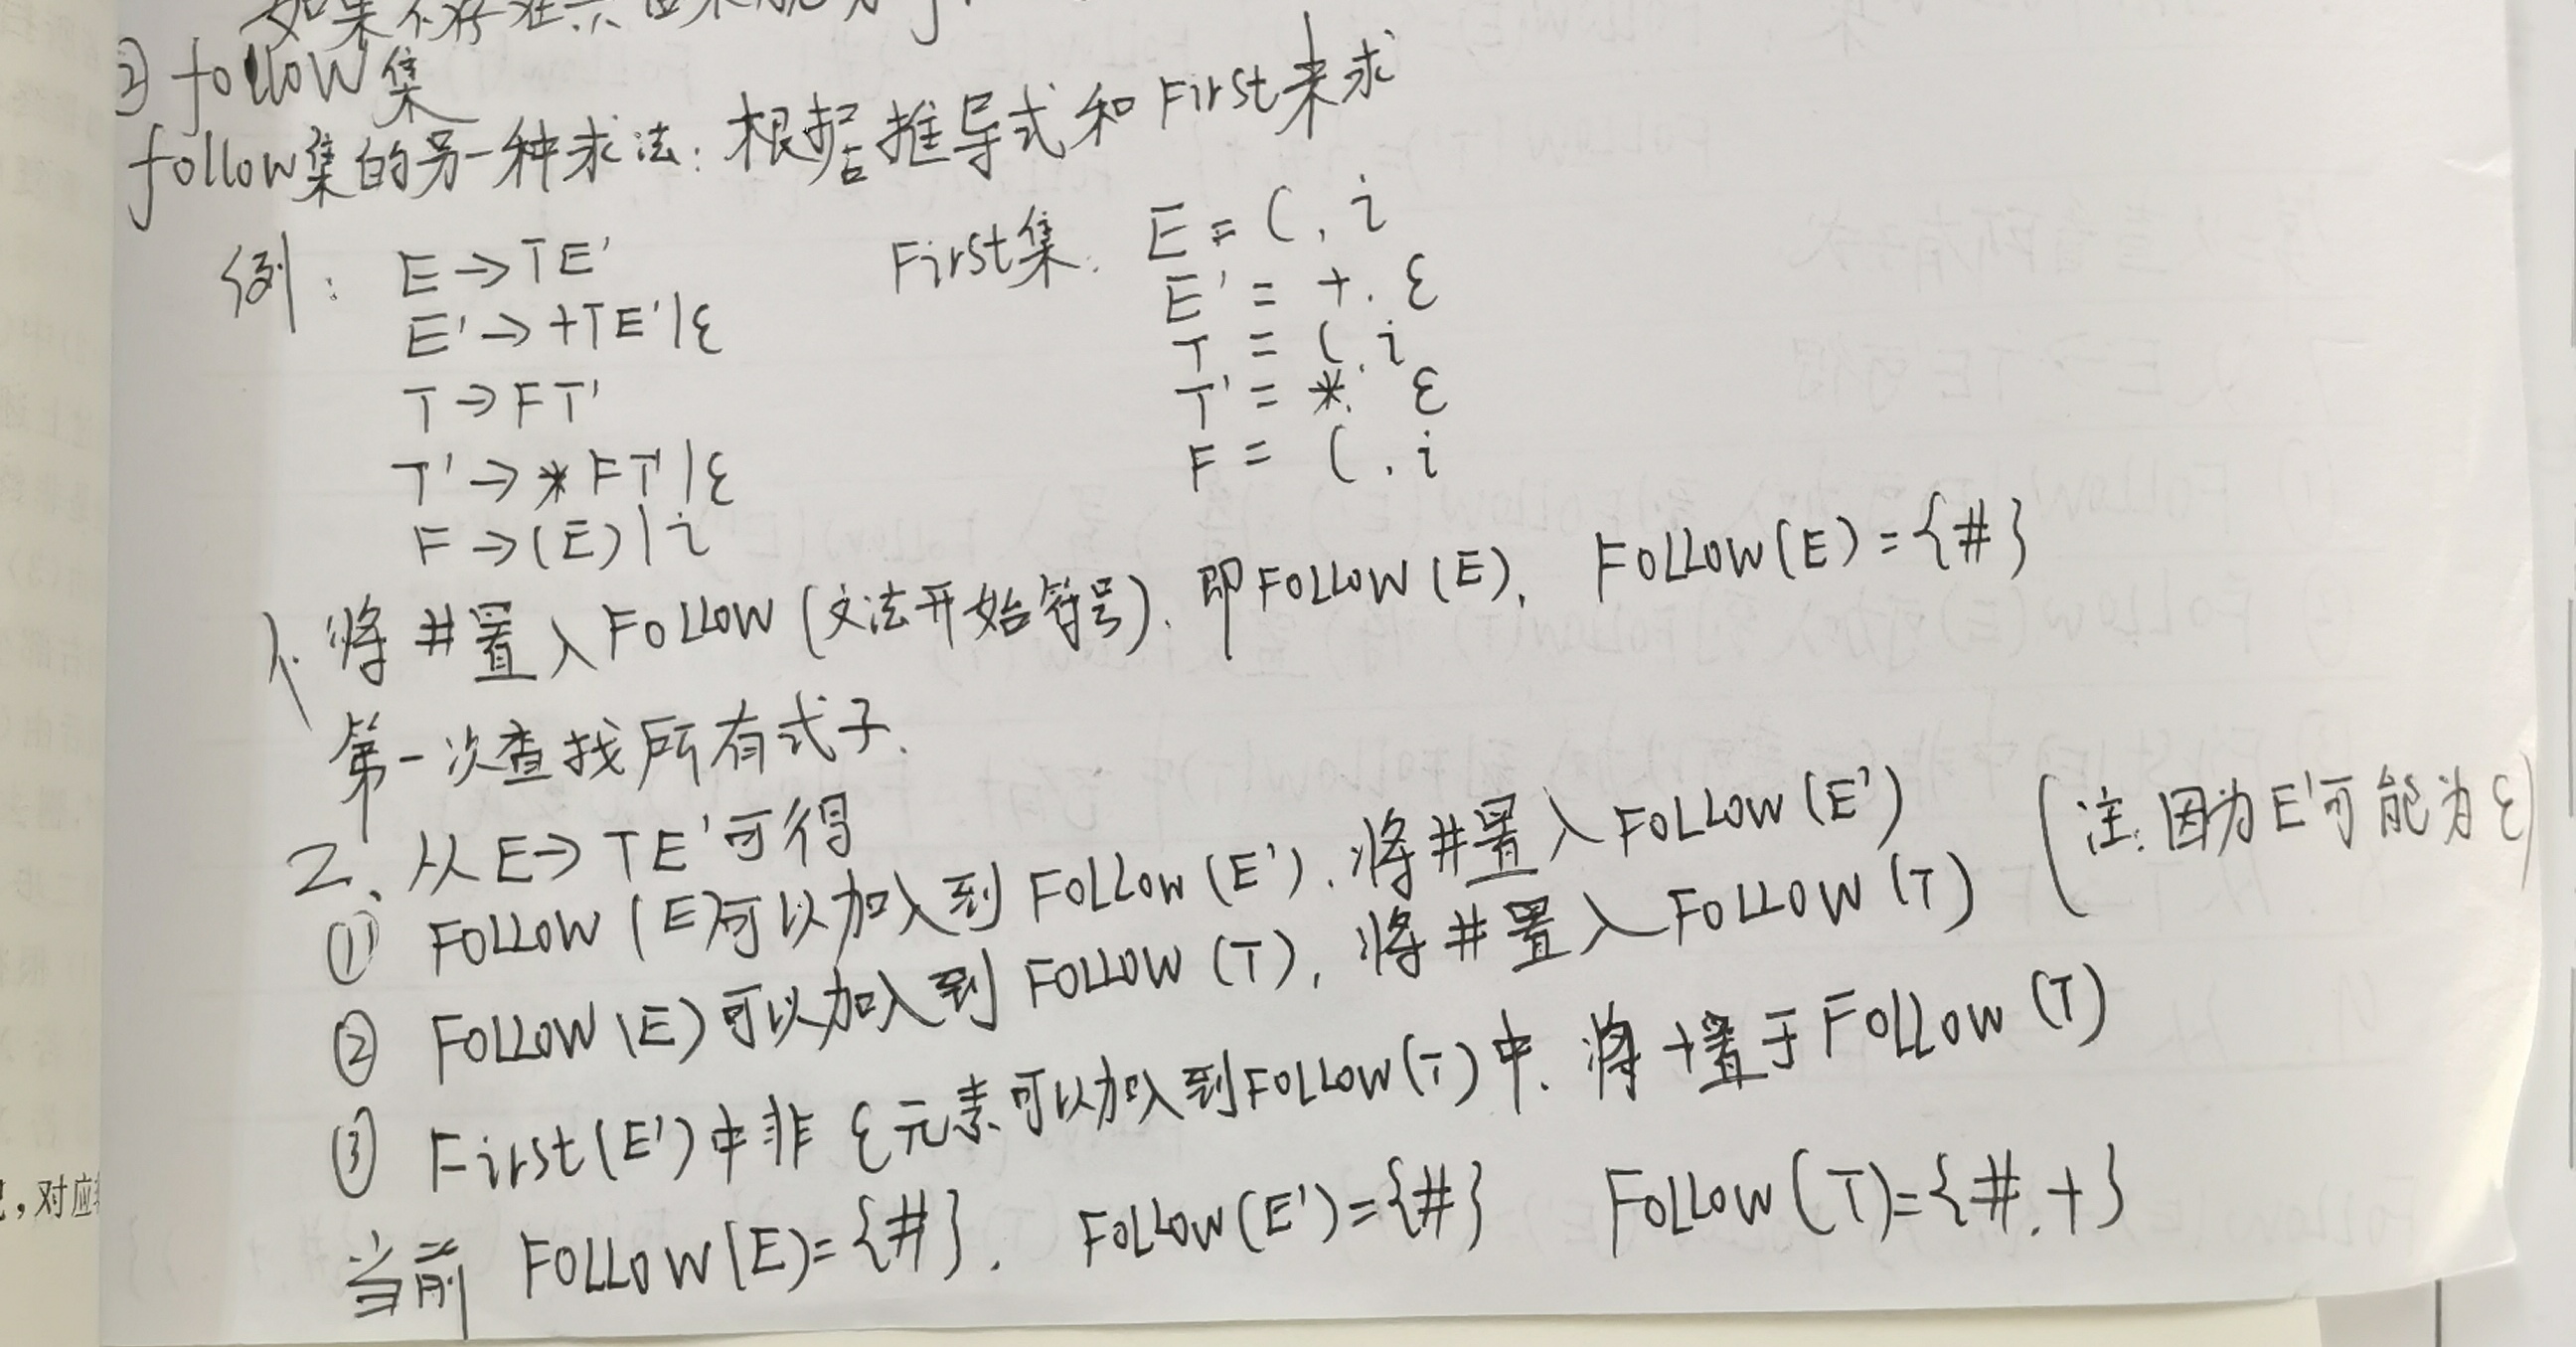 如果不存在
② follow集
follow集的另一种求法：根据推导式和First来求
例： E→TE' First集. E = (, i
E'→+TE'|ε E' = +, ε
T→FT' T = (, i
T'→*FT'|ε T' = *, ε
F→(E)|i F = (, i
1、将#置入FOLLOW(文法开始符号), 即FOLLOW(E), FOLLOW(E)={#}
第一次查找所有式子.
2、从E→TE'可得
① FOLLOW(E)可以加入到FOLLOW(E'), 将#置入FOLLOW(E')
② FOLLOW(E)可以加入到FOLLOW(T), 将#置入FOLLOW(T) (注: 因为E'可能为ε)
③ First(E')中非ε元素可以加入到FOLLOW(T)中. 将+置于FOLLOW(T)
当前 FOLLOW(E)={#}. FOLLOW(E')={#} FOLLOW(T)={#,+}
，对应